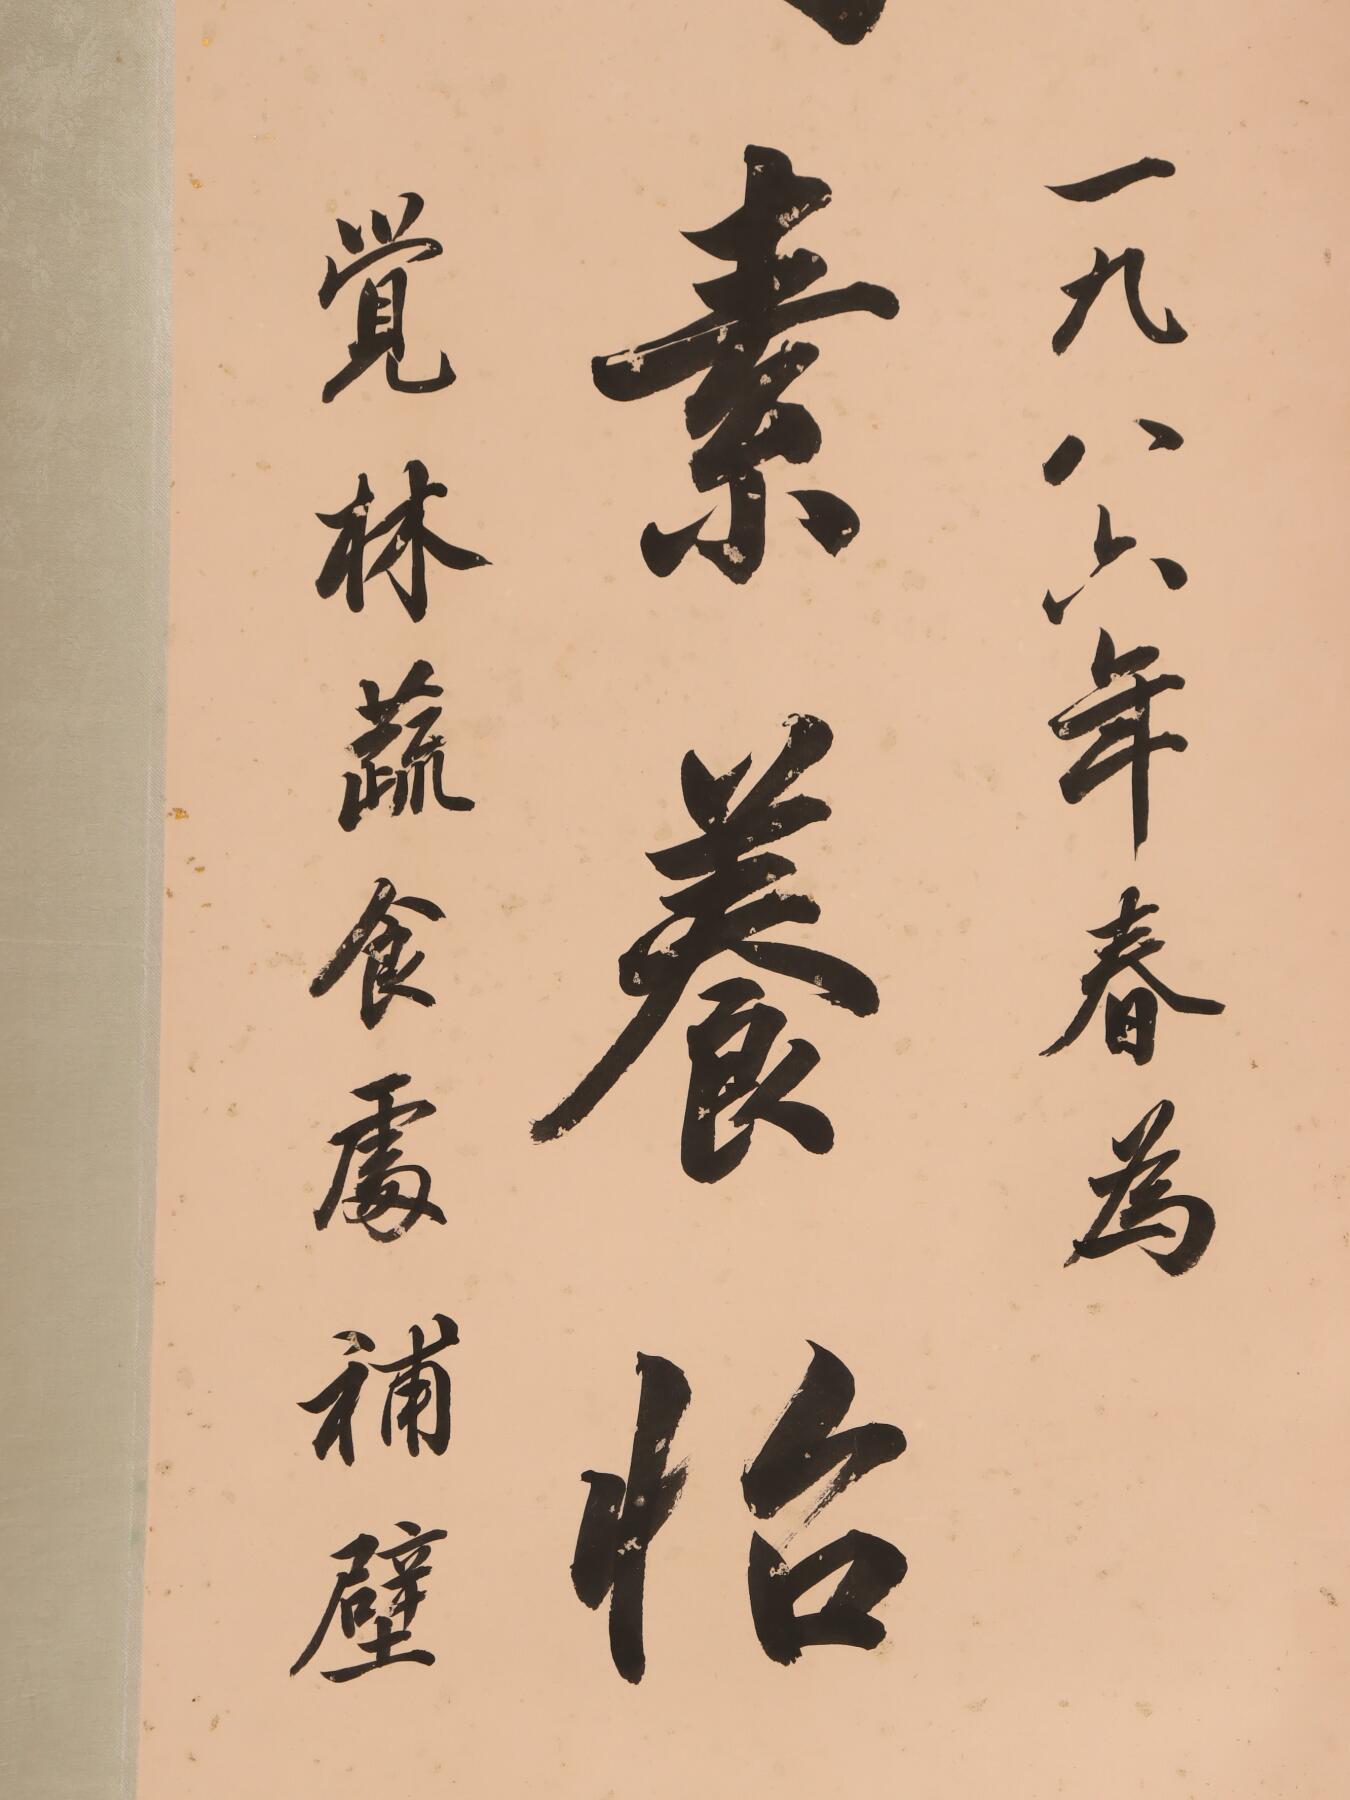 一九八六年春為
素養怡
覺林蔬食處補壁